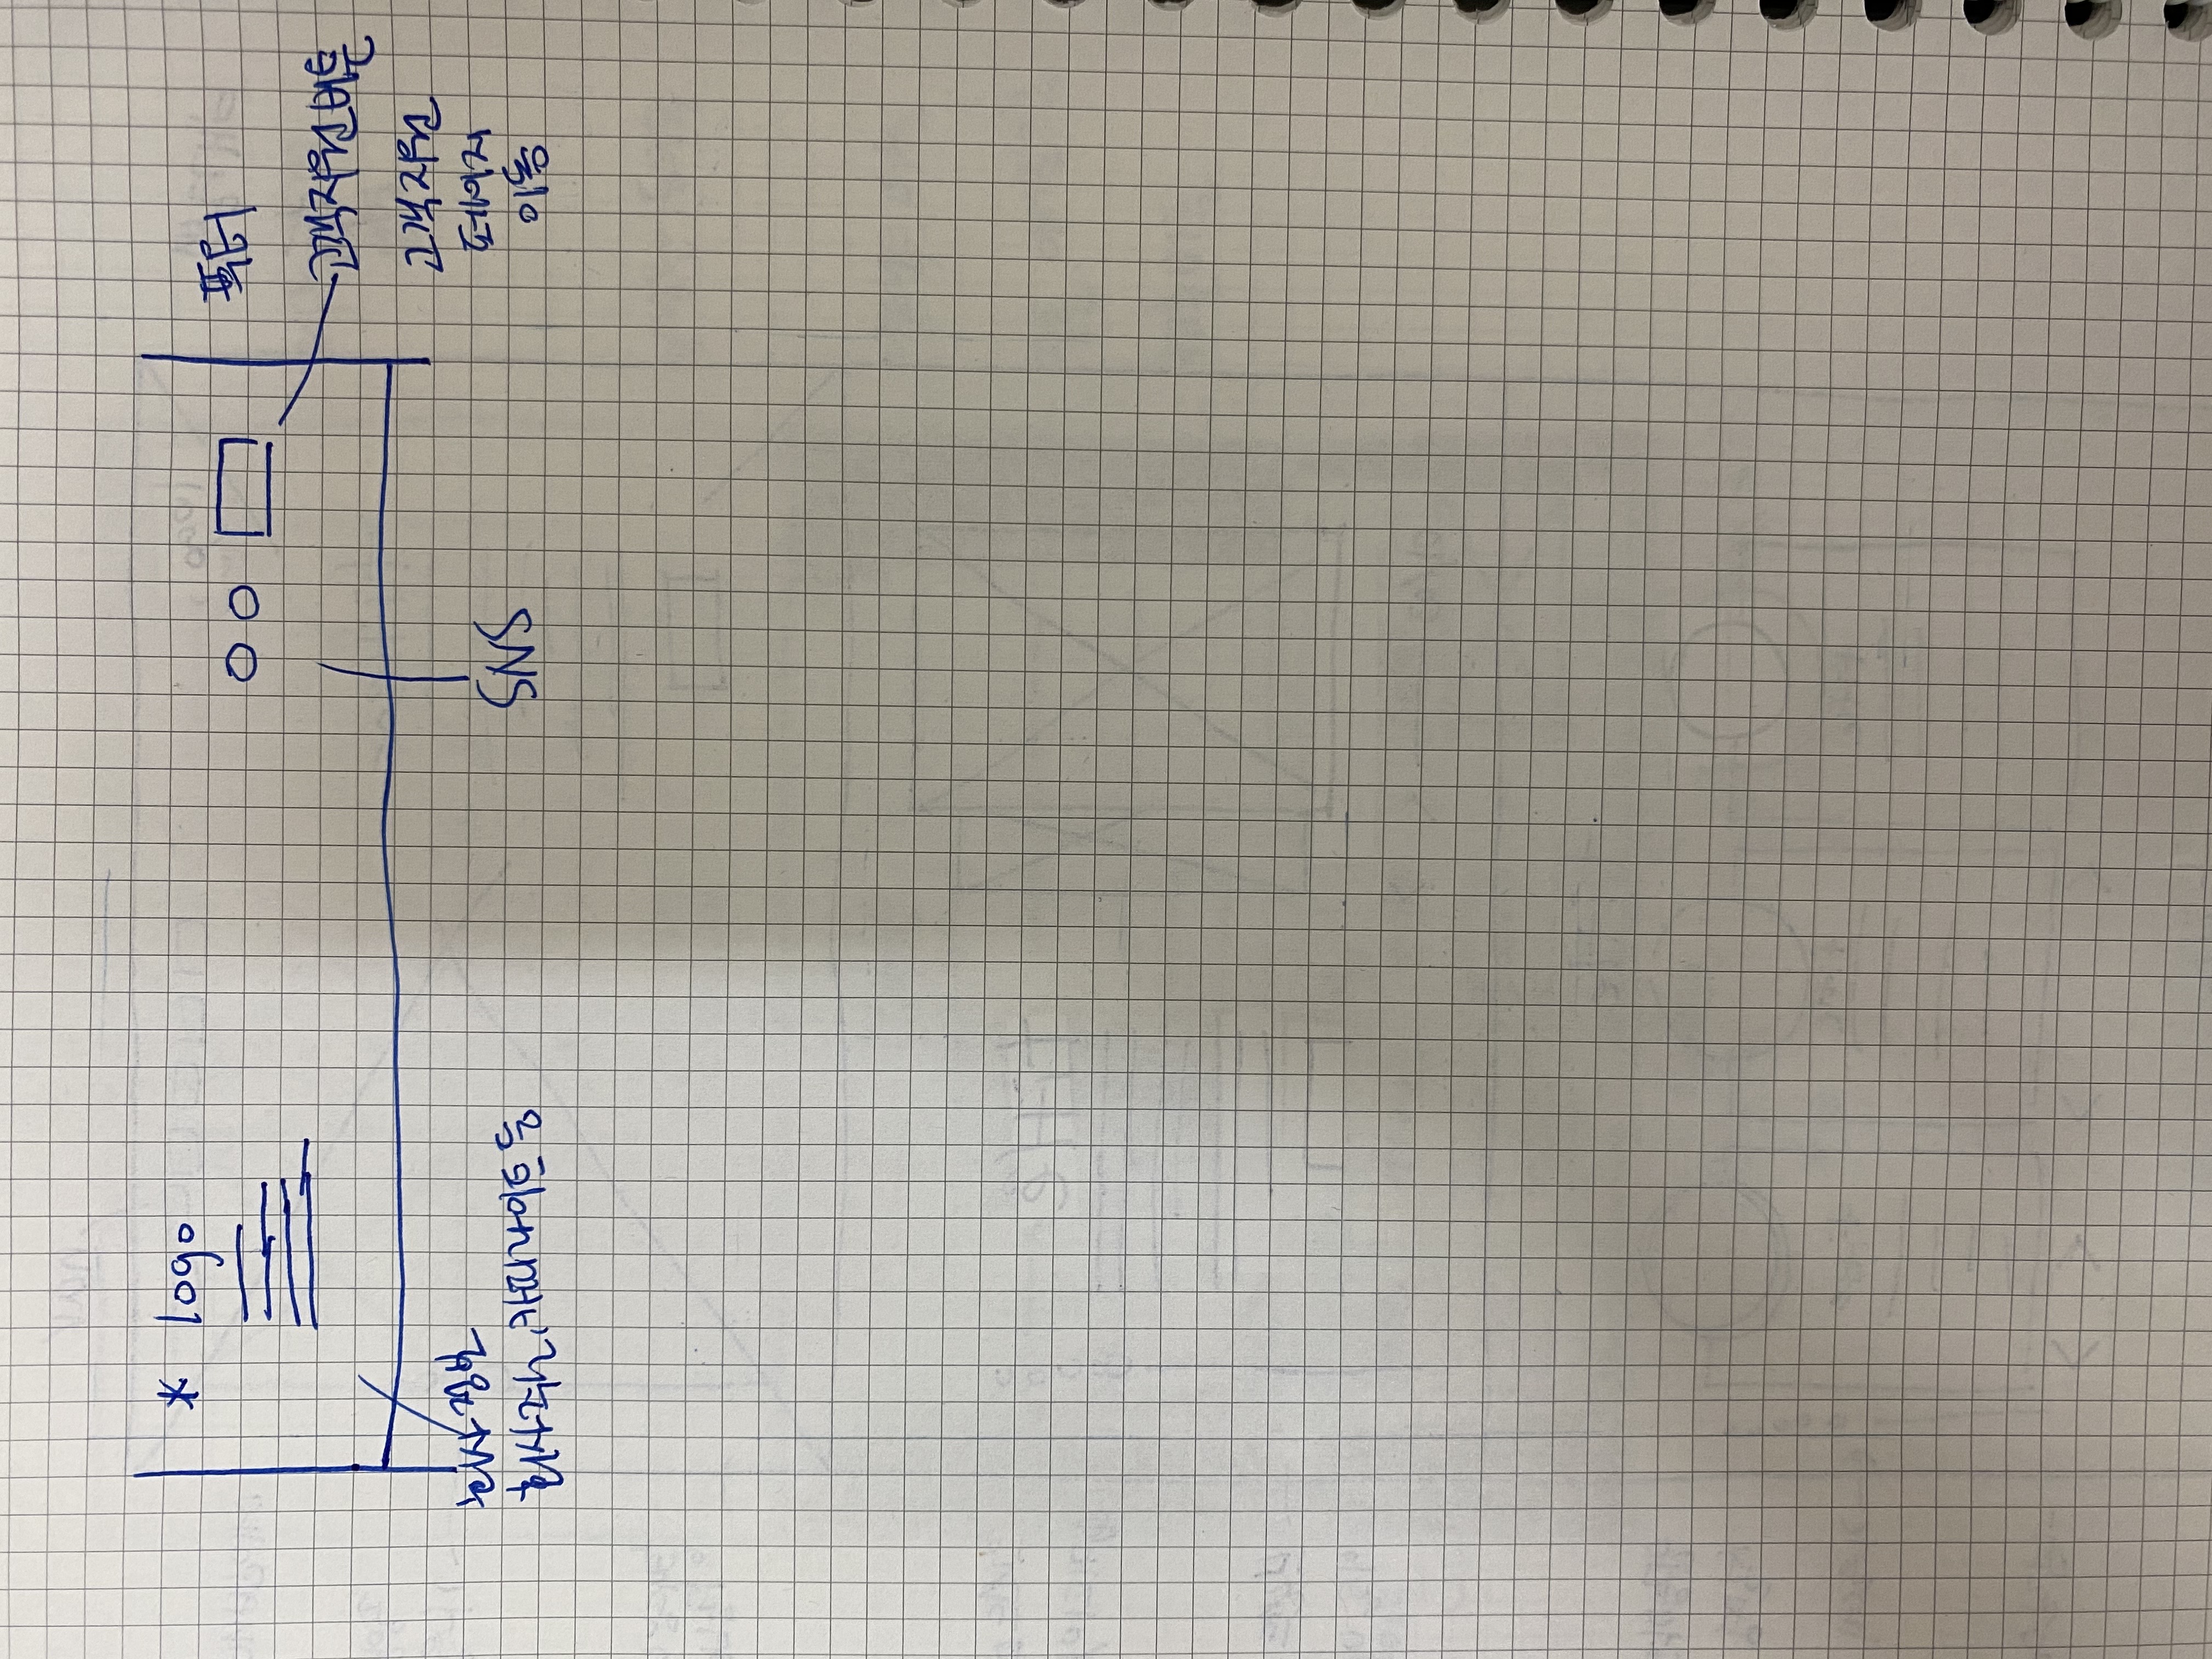 * logo
푹터
고객지원 버튼
고객지원
페이지
이동
회사 정보
회사주소, 카피라이트 등
SNS